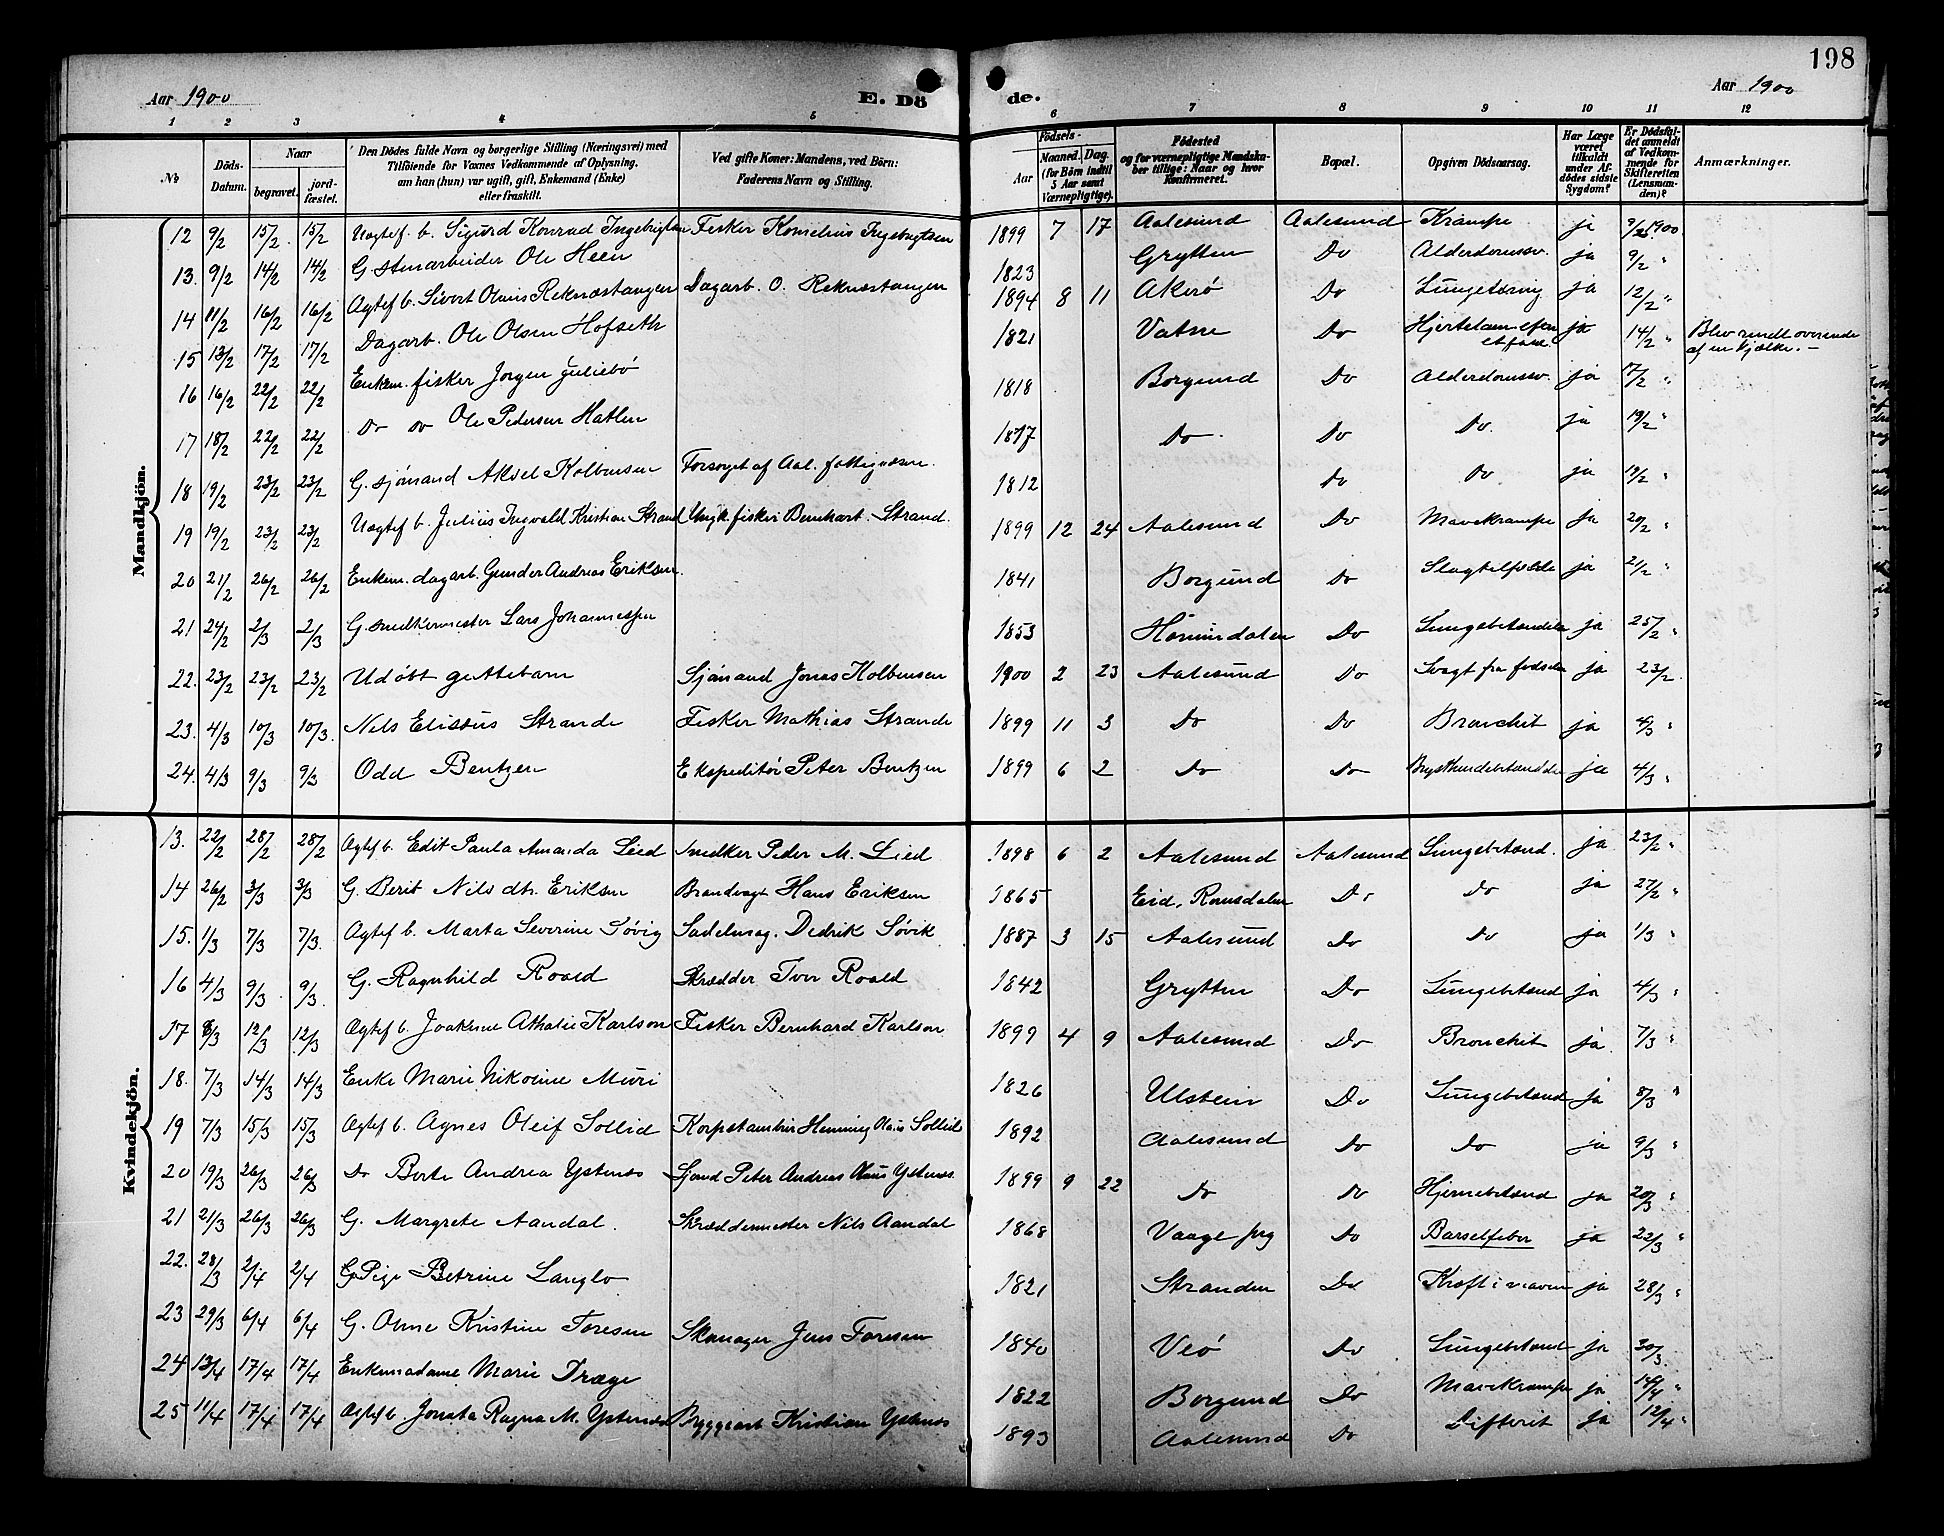 198
Aar 1900 E. Dö de. Aar 1900
1 2 3 4 5 6 7 8 9 10 11 12
No Döds-Datum. Naar begravet. jord-fæstet. Den Dödes fulde Navn og borgerlige Stilling (Næringsvei) med Tilföiende for Voxnes Vedkommende af Oplysning, om han (hun) var ugift, gift, Enkemand (Enke) eller fraskilt. Ved gifte Koner: Mandens, ved Börn: Faderens Navn og Stilling. Födsels- Aar Maaned. Dag. (for Börn indtil 3 Aar samt Værnepligtige). Födested og for værnepligtige Mandskaber tillige: Naar og hvor Konfirmeret. Bopæl. Opgiven Dödsaarsag. Har Læge været tilkaldt under Afdödes sidste Sygdom? Er Dödsfaldet anmeldt af Vedkommende for Skifteretten (Lensmanden)? Anmærkninger.
Mandkjön.
12 9/2 15/2 15/2 Uægtef. b. Sigurd Konrad Ingebrigtsen Fisker Kornelius Ingebrigtsen 1899 7 17 Aalesund Aalesund Krampe ja 9/2 1900.
13. 9/2 14/2 14/2 G. stenarbeider Ole Heen 1823 Grytten Do Alderdomssv. ja 9/2 "
14 11/2 16/2 16/2 Ægtef b. Sivert Olaus Reknæstangen Dagarb. O. Reknæstangen 1894 8 11 Akerø Do Lungetæring ja 12/2 "
15 13/2 17/2 17/2 Dagarb. Ole Olsen Hofseth 1821 Vatne Do Hjertelam. efter et fald. ja 14/2 " Blev rendt overende af en kjælke. -
16 16/2 22/2 22/2 Enkem. fisker Jørgen Juliebø 1818 Borgund Do Alderdomssv. ja 17/2 "
17 18/2 22/2 22/2 Do Do Ole Pedersen Hatlen 1817 Do. Do Do. ja 19/2 "
18 19/2 23/2 23/2 G. sjømand Aksel Kolbensen Forsørget af Aal. fattigvæsen. 1812 Do Do ja 19/2 "
19 19/2 23/2 23/2 Uægtef b. Julius Ingvald Kristian Strand Ungk. fisker Bernhart Strand. 1899 12 24 Aalesund Do Mavekrampe ja 20/2 "
20 21/2 26/2 26/2 Enkem. dagarb. Gunder Andreas Eriksen. 1841 Borgund Do Slagtilfælde ja 21/2 "
21 24/2 2/3 2/3 G. snedkermester Lars Johannessen 1853 Hornindalen Do Lungebetændelse ja 25/2 "
22. 23/2 23/2 23/2 Udøbt guttebarn Sjømand Jonas Kolbensen 1900 2 23 Aalesund Do Svagt fra fødselen ja 23/2.
23. 4/3 10/3 10/3. Nils Elisæus Strande Fisker Mathias Strande 1899 11 3 Do Do Bronchit ja 4/3 "
24. 4/3 9/3 9/3 Odd Bentzen Ekspeditør Peter Bentzen 1899 6 2 Do Do Brysthindebetændelse ja 4/3 "
Kvindekjön.
13. 22/2 28/2 28/2 Ægtef b. Edit Paula Amanda Lied Snedker Peder M. Lied 1898 6 2 Aalesund Aalesund Lungebetænd. ja 23/2 "
14 26/2 3/3 3/3 G. Berit Nils dt. Eriksen Brandvagt Hans Eriksen 1865 Eid, Romsdalen Do Do ja 27/2 "
15. 1/3 7/3 7/3. Ægtef b. Marta Severine Søvig Sadelmag. Dedrik Søvik 1887 3 15 Aalesund Do Do ja 1/3 "
16 4/3 9/3. 9/3. G. Ragnhild Roald Skrædder Iver Roald 1842 Grytten Do Lungebetænd ja 4/3 "
17 6/3 12/3 12/3 Ægtef b. Joakime Athalie Karlson Fisker Bernhard Karlson 1899 4 9 Aalesund Do Bronchit ja. 7/3 "
18. 7/3 14/3 14/3 Enke Marie Nikoline Muri 1826 Ulstein Do Lungebetænd ja 8/3 "
19 7/3 15/3 15/3 Ægtef b. Agnes Oleif Sollid Korpstambur Henning Olaus Sollid 1892 Aalesund Do Do ja 9/3 "
20 19/3 26/3 26/3 Do Berte Andrea Ystenes Sjømd Peter Andreas Olaus Ystenes. 1899 9 22 Do Do Hjernebetænd ja 20/3 "
21 21/3 26/3 26/3 G. Margrete Aandal. Skræddermester Nils Aandal 1868 Vaage prg Do Barselfeber ja 22/3 "
22. 28/3 2/4 2/4 G. Pige Betrine Langlo 1821 Stranden Do Kræft i maven ja 28/3 "
23 29/3 6/4 6/4 G. Olene Kristine Toresen Skomager Jens Toresen 1840 Veø Do Lungebetænd ja 30/3.
24 13/4 17/4 17/4 Enkemadame Marie Dræge 1822 Borgund Do Mavekrampe ja 14/4 "
25 11/4 17/4 17/4 Ægtef b. Jonata Ragna M. Ystenes Bryggearb Kristian Ystenes 1893 Aalesund Do Difterit ja 12/4 "